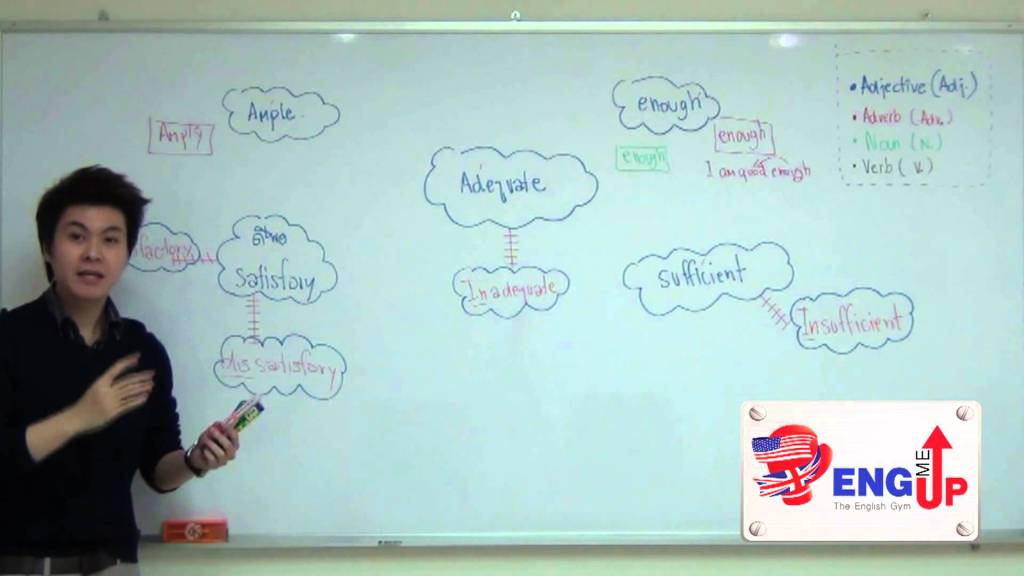 Ample
Amply
enough
enough
enough
I am good enough
• Adjective (Adj.)
• Adverb (Adv.)
• Noun (N.)
• Verb (V.)
Adequate
Inadequate
factory
ดีพอ
satisfory
dissatisfory
sufficient
Insufficient
ENG ME UP
The English Gym